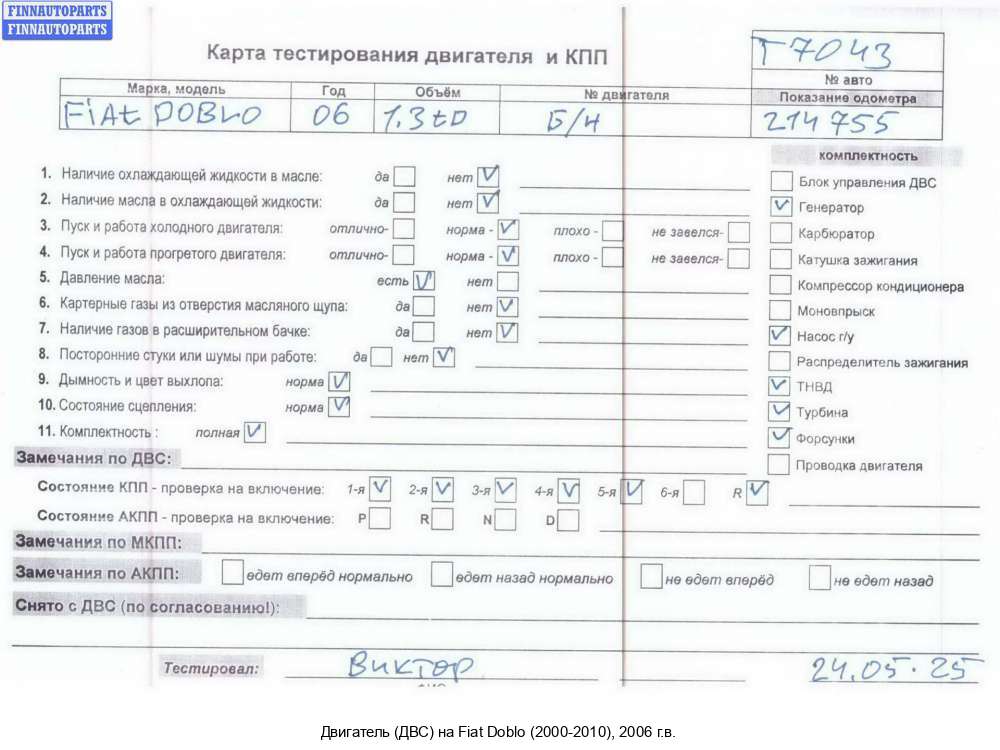 FINNAUTOPARTS
FINNAUTOPARTS
Карта тестирования двигателя и КПП
T7043
№ авто
Марка, модель Год Объём № двигателя Показание одометра
Fiat DOBLO 06 1.3td Б/Н 214755
комплектность
1. Наличие охлаждающей жидкости в масле: да нет
Блок управления ДВС
2. Наличие масла в охлаждающей жидкости: да нет
Генератор
3. Пуск и работа холодного двигателя: отлично- норма - плохо - не завелся-
Карбюратор
4. Пуск и работа прогретого двигателя: отлично- норма - плохо - не завелся-
Катушка зажигания
5. Давление масла: есть нет
Компрессор кондиционера
6. Картерные газы из отверстия масляного щупа: да нет
Моновпрыск
7. Наличие газов в расширительном бачке: да нет
Насос г/у
8. Посторонние стуки или шумы при работе: да нет
Распределитель зажигания
9. Дымность и цвет выхлопа: норма
ТНВД
10. Состояние сцепления: норма
Турбина
11. Комплектность : полная
Форсунки
Замечания по ДВС:
Проводка двигателя
Состояние КПП - проверка на включение: 1-я 2-я 3-я 4-я 5-я 6-я R
Состояние АКПП - проверка на включение: P R N D
Замечания по МКПП:
Замечания по АКПП: едет вперёд нормально едет назад нормально не едет вперёд не едет назад
Снято с ДВС (по согласованию!):
Тестировал: Виктор 24.05.25
Двигатель (ДВС) на Fiat Doblo (2000-2010), 2006 г.в.